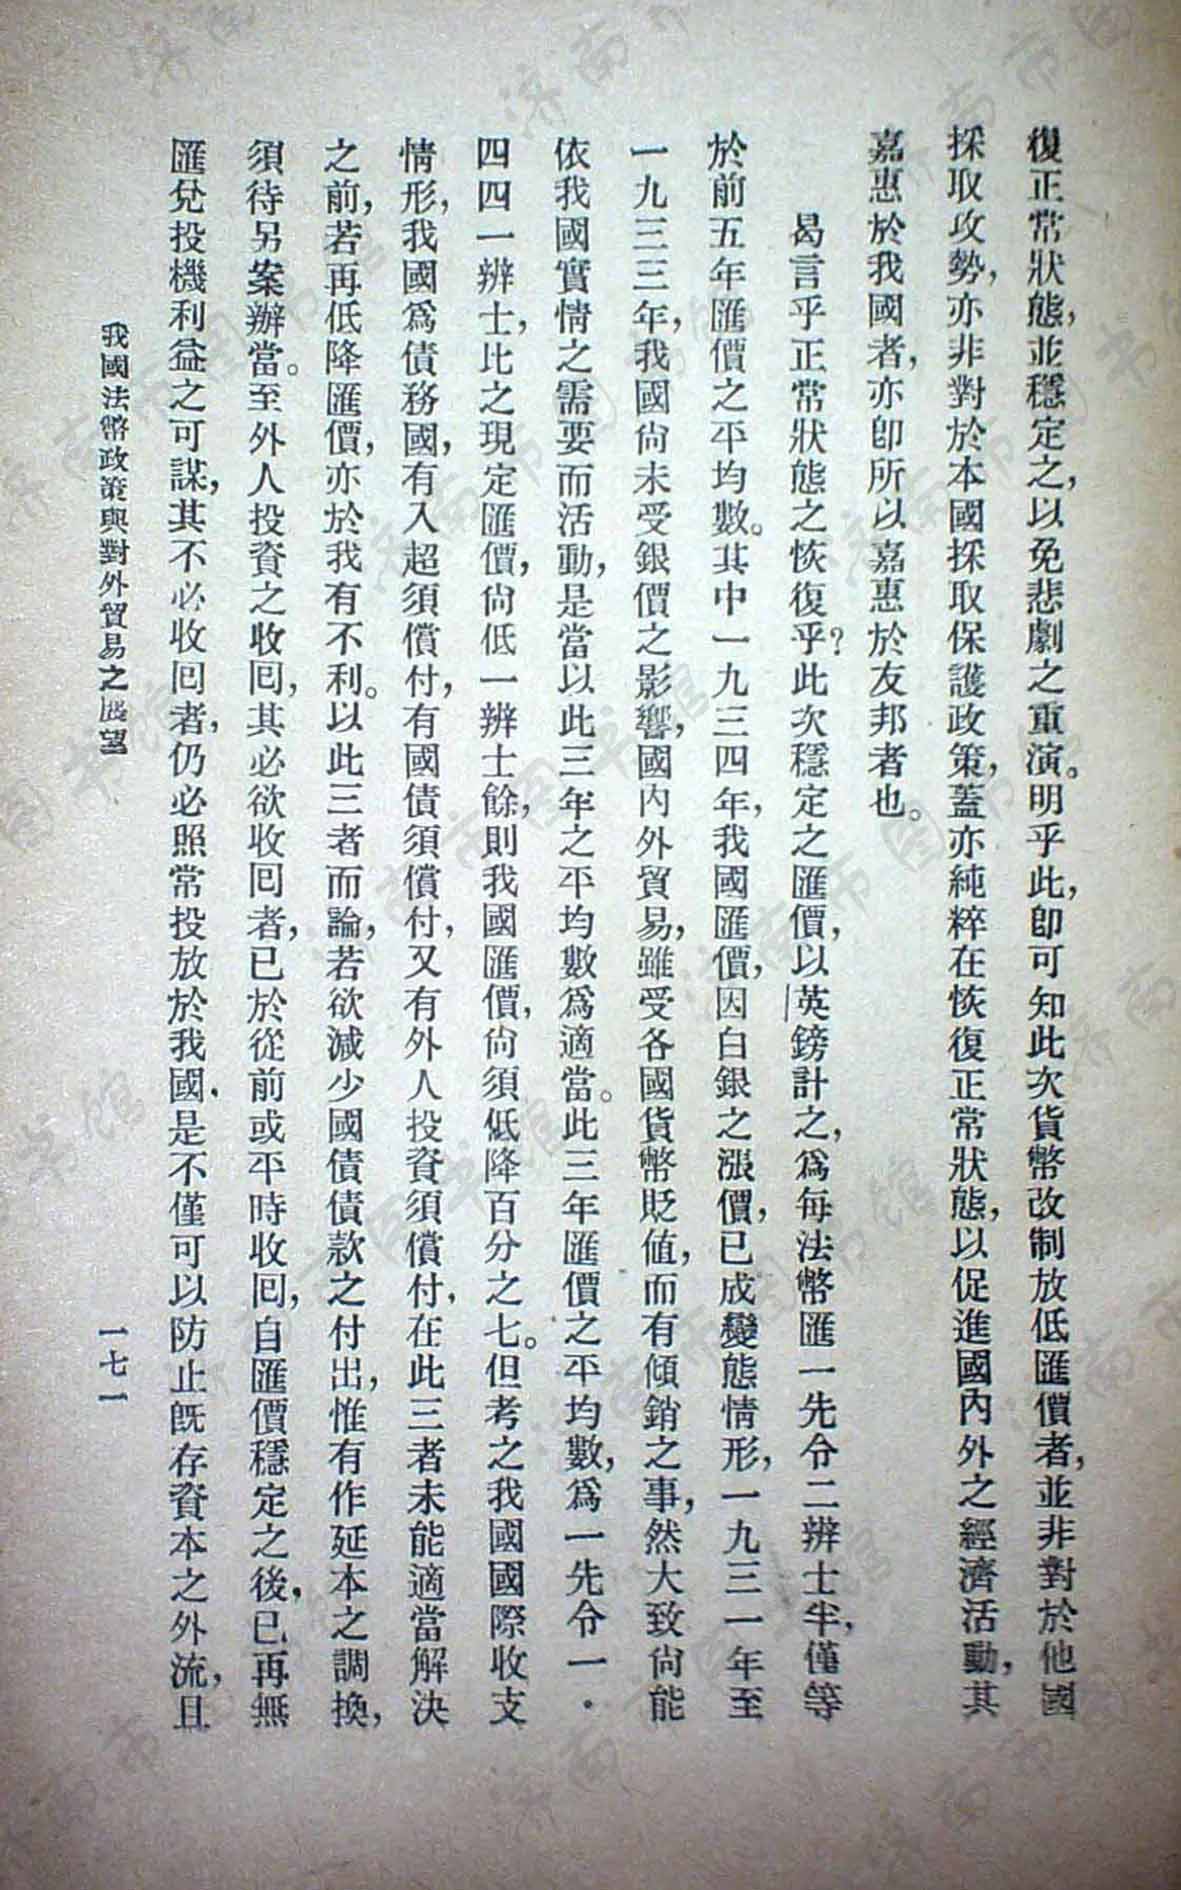 復正常狀態，並穩定之，以免悲劇之重演。明乎此，卽可知此次貨幣改制放低匯價者，並非對於他國
採取攻勢，亦非對於本國採取保護政策，蓋亦純粹在恢復正常狀態，以促進國內外之經濟活動，其
嘉惠於我國者，亦卽所以嘉惠於友邦者也。
曷言乎正常狀態之恢復乎？此次穩定之匯價，以英鎊計之，爲每法幣匯一先令二辨士半，僅等
於前五年匯價之平均數。其中一九三四年，我國匯價，因白銀之漲價，已成變態情形，一九三一年至
一九三三年，我國尙未受銀價之影響，國內外貿易，雖受各國貨幣貶値，而有傾銷之事，然大致尙能
依我國實情之需要而活動，是當以此三年之平均數爲適當。此三年匯價之平均數，爲一先令一．
四四一辨士，比之現定匯價，尙低一辨士餘，則我國匯價，尙須低降百分之七。但考之我國國際收支
情形，我國爲債務國，有入超須償付，有國債須償付，又有外人投資須償付，在此三者未能適當解決
之前，若再低降匯價，亦於我有不利。以此三者而論，若欲減少國債債款之付出，惟有作延本之調換，
須待另案辦當。至外人投資之收囘，其必欲收囘者，已於從前或平時收囘，自匯價穩定之後，已再無
匯兌投機利益之可謀，其不必收囘者，仍必照常投放於我國，是不僅可以防止旣存資本之外流，且
我國法幣政策與對外貿易之展望
一七一
濟南市图书馆